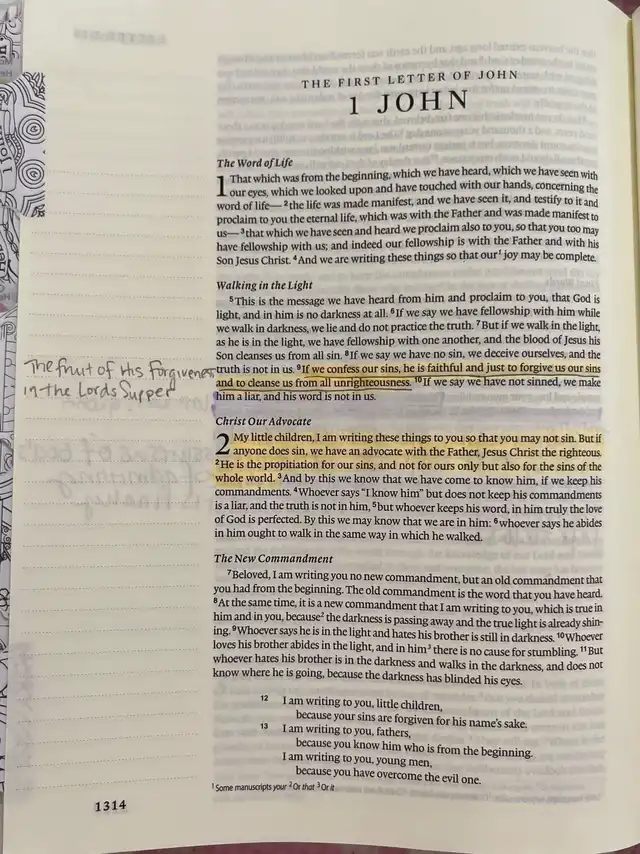 THE FIRST LETTER OF JOHN
1 JOHN
The Word of Life
1 That which was from the beginning, which we have heard, which we have seen with
our eyes, which we looked upon and have touched with our hands, concerning the
word of life— ²the life was made manifest, and we have seen it, and testify to it and
proclaim to you the eternal life, which was with the Father and was made manifest to
us— ³that which we have seen and heard we proclaim also to you, so that you too may
have fellowship with us; and indeed our fellowship is with the Father and with his
Son Jesus Christ. ⁴And we are writing these things so that our¹ joy may be complete.
Walking in the Light
⁵This is the message we have heard from him and proclaim to you, that God is
light, and in him is no darkness at all. ⁶If we say we have fellowship with him while
we walk in darkness, we lie and do not practice the truth. ⁷But if we walk in the light,
as he is in the light, we have fellowship with one another, and the blood of Jesus his
Son cleanses us from all sin. ⁸If we say we have no sin, we deceive ourselves, and the
truth is not in us. ⁹If we confess our sins, he is faithful and just to forgive us our sins
and to cleanse us from all unrighteousness. ¹⁰If we say we have not sinned, we make
him a liar, and his word is not in us.
The fruit of His Forgiveness
in the Lords Supper
Christ Our Advocate
2 My little children, I am writing these things to you so that you may not sin. But if
anyone does sin, we have an advocate with the Father, Jesus Christ the righteous.
²He is the propitiation for our sins, and not for ours only but also for the sins of the
whole world. ³And by this we know that we have come to know him, if we keep his
commandments. ⁴Whoever says "I know him" but does not keep his commandments
is a liar, and the truth is not in him, ⁵but whoever keeps his word, in him truly the love
of God is perfected. By this we may know that we are in him: ⁶whoever says he abides
in him ought to walk in the same way in which he walked.
The New Commandment
⁷Beloved, I am writing you no new commandment, but an old commandment that
you had from the beginning. The old commandment is the word that you have heard.
⁸At the same time, it is a new commandment that I am writing to you, which is true in
him and in you, because² the darkness is passing away and the true light is already shin-
ing. ⁹Whoever says he is in the light and hates his brother is still in darkness. ¹⁰Whoever
loves his brother abides in the light, and in him³ there is no cause for stumbling. ¹¹But
whoever hates his brother is in the darkness and walks in the darkness, and does not
know where he is going, because the darkness has blinded his eyes.
¹² I am writing to you, little children,
because your sins are forgiven for his name's sake.
¹³ I am writing to you, fathers,
because you know him who is from the beginning.
I am writing to you, young men,
because you have overcome the evil one.
¹ Some manuscripts your ² Or that ³ Or it
1314